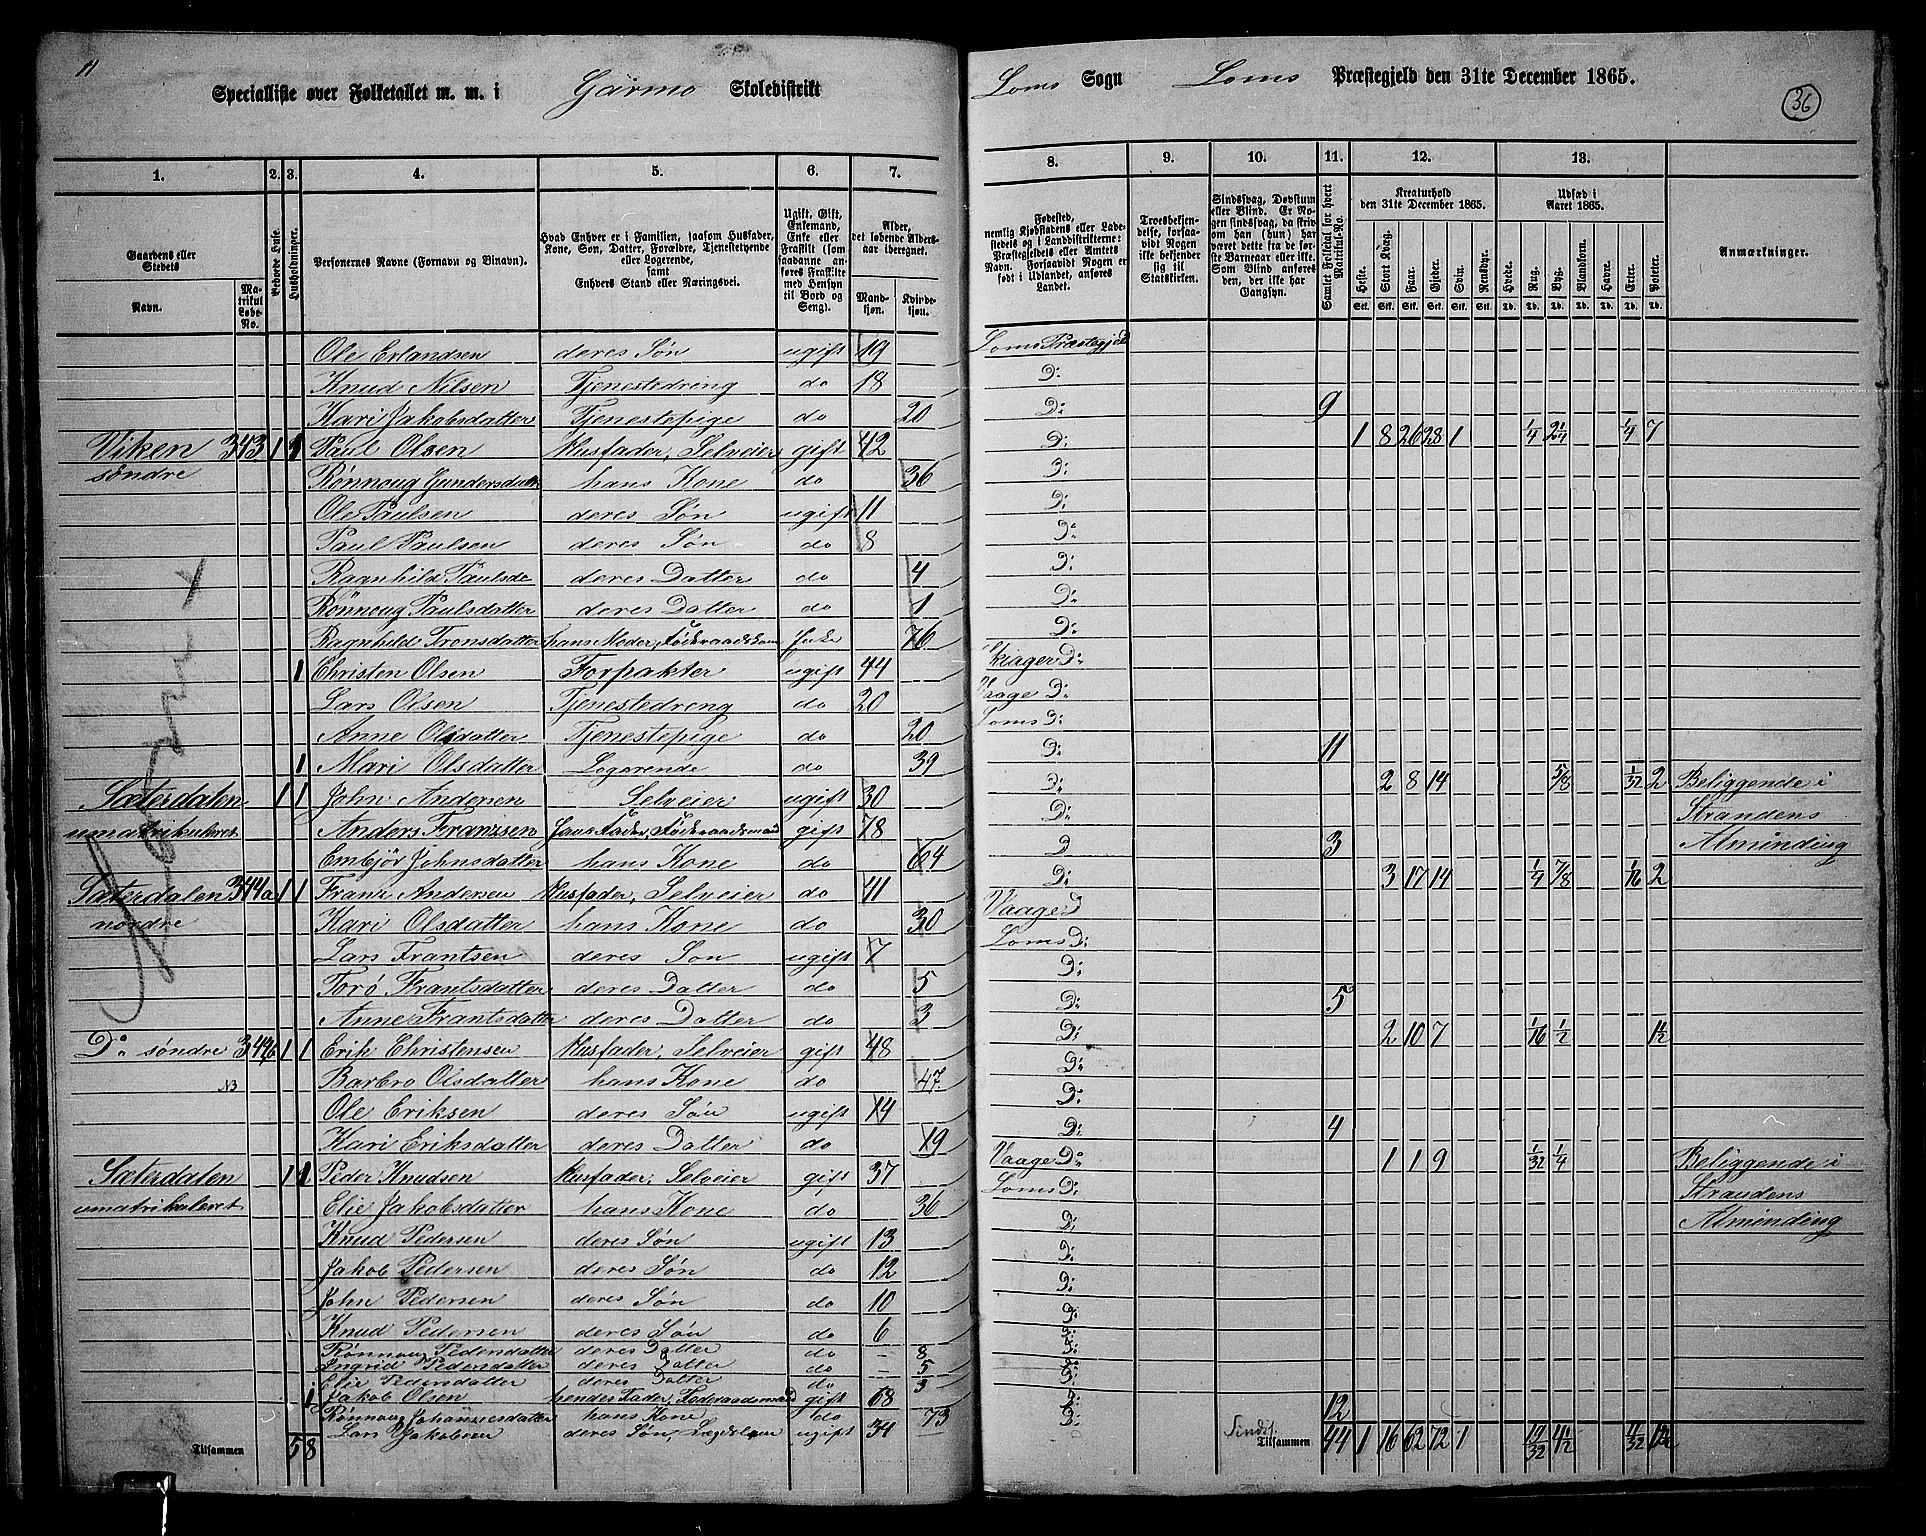 11
Specialliste over Folketallet m. m. i Garmo Skoledistrikt
Loms Sogn Loms Præstegjeld den 31te December 1865.
36
1. 2. 3. 4. 5. 6. 7. 8. 9. 10. 11. 12. 13.
Gaardens eller Stedets
Navn.
Matrikul Løbe-No.
Beboede Huse.
Husholdninger.
Personernes Navne (Fornavn og Binavn).
Hvad Enhver er i Familien, saasom Husfader, Kone, Søn, Datter, Forældre, Tjenestetyende eller Logerende, samt Enhvers Stand eller Næringsvei.
Ugift, Gift, Enkemand, Enke eller Fraskilt (saasom saadanne anføres Fraskilte med Hensyn til Bord og Seng).
Alder, det løbende Aldersaar iberegnet.
Mandkjøn. Kvindekjøn.
Fødested, nemlig Kjøbstadens eller Ladestedets og i Landdistrikterne: Præstegjeldets eller Amtets Navn. Forsaavidt Nogen er født i Udlandet, anføres Landet.
Troesbekjendelse, forsaavidt Nogen ikke bekjender sig til Statskirken.
Sindssvag, Døvstum eller Blind. Er Nogen sindssvag, da skriv om han (hun) har været dette fra de første Barneaar eller ikke. Som Blind anføres den, der ikke har Gangsyn.
Samlet Folketal for hvert Matrikul-No.
Kreaturhold den 31te December 1865.
Heste. Stort Kvæg. Faar. Gjeder. Svin. Rensdyr.
Stk. Stk. Stk. Stk. Stk. Stk.
Udsæd i Aaret 1865.
Hvede. Rug. Byg. Blandkorn. Havre. Erter. Poteter.
Td. Td. Td. Td. Td. Td. Td.
Anmærkninger.
Ole Erlandsen deres Søn ugift 19 Loms Præstegjeld
Knud Nilsen Tjenestedreng do 18 D:
Kari Jakobsdatter Tjenestepige do 20 D: 9
Viken 343 1 1 Paul Olsen Husfader, Selveier gift 42 D: 1 8 26 28 1 1/4 2 1/4 1/4 7
søndre Rønnoug Gundersdatter hans Kone do 36 D:
Ole Paulsen deres Søn ugift 11 D:
Paul Paulsen deres Søn do 8 D:
Ragnhild Paulsd deres Datter do 4 D:
Rønnoug Paulsdatter deres Datter do 1 D:
Ragnhild Tronsdatter hans Moder, Føderaadskone Enke 76 D:
1 Christen Olsen Forpakter ugift 44 Skiager D:
Lars Olsen Tjenestedreng do 20 Vaage D:
Anne Olsdatter Tjenestepige do 20 Loms D:
1 Mari Olsdatter Logerende do 39 D: 11
Sæterdalen 1 1 John Andersen Selveier ugift 30 D: 2 8 14 5/8 1/32 2 Beliggende i
umatrikuleret Anders Franzsen hans Fader, Føderaadsmand gift 78 D: Strandens
Embjør Johnsdatter hans Kone do 64 D 3 Alminding
Sæterdalen 344a 1 1 Franz Andersen Husfader, Selveier do 41 D: 3 17 14 1/4 7/8 1/16 2
nordre Kari Olsdatter hans Kone do 30 Vaage D
Lars Frantsen deres Søn ugift 7 Loms D:
Torø Frantsdatter deres Datter do 5 D:
Anne Frantsdatter deres Datter do 3 D: 5
Do søndre 344b 1 1 Erik Christensen Husfader, Selveier gift 48 D: 2 10 7 1/16 1/2 1 1/2
N3 Barbro Olsdatter hans Kone do 47 D:
Ole Eriksen deres Søn ugift 14 D:
Kari Eriksdatter deres Datter do 19 D: 4
Sæterdalen 1 1 Peder Knudsen Husfader, Selveier gift 37 Vaage D: 1 1 9 1/32 1/4 Beliggende i
umatrikuleret Elie Jakobsdatter hans Kone do 36 Loms D: Strandens
Knud Pedersen deres Søn ugift 13 D: Alminding
Jakob Pedersen deres Søn do 12 D:
John Pedersen deres Søn do 10 D:
Knud Pedersen deres Søn do 6 D:
Rønnoug Pedersdatter deres Datter do 8 D:
Ingrid Pedersdatter deres Datter do 5 D:
Elie Pedersdatter deres Datter do 3 D:
1 Jakob Olsen hendes Fader, Føderaadsmand gift 68 D:
Rønnoug Johannesdatter hans Kone do 73 D: 12
Lars Jakobsen deres Søn, Lægdslem ugift 34 D: Sindss.
Tilsammen 5 8 Tilsammen 44 1 16 62 72 1 19/32 4 1/2 11/32 12 1/2